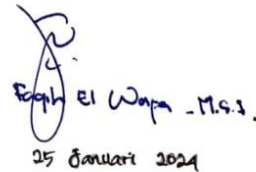 Faqih El Wafa - M.S.I.
25 Januari 2024